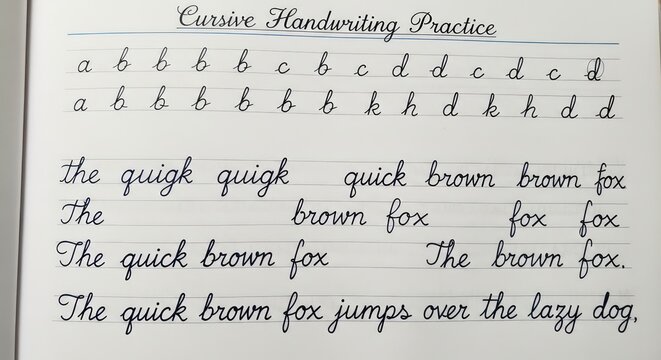 Cursive Handwriting Practice
a b b b b c b c d d c d c d
a b b b b b b k h d k h d d
the quigk quigk quick brown brown fox
The brown fox fox fox
The quick brown fox The brown fox.
The quick brown fox jumps over the lazy dog,